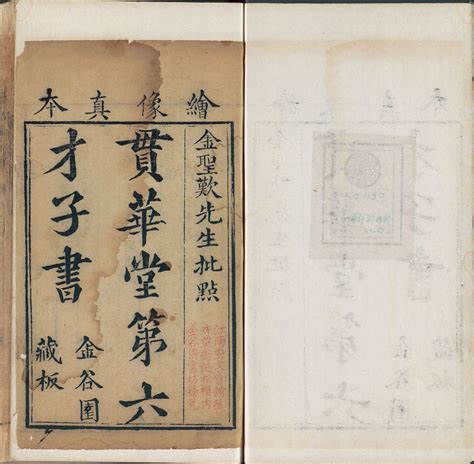 繪像真本
金聖歎先生批點
貫華堂第六
才子書
金谷園
藏板